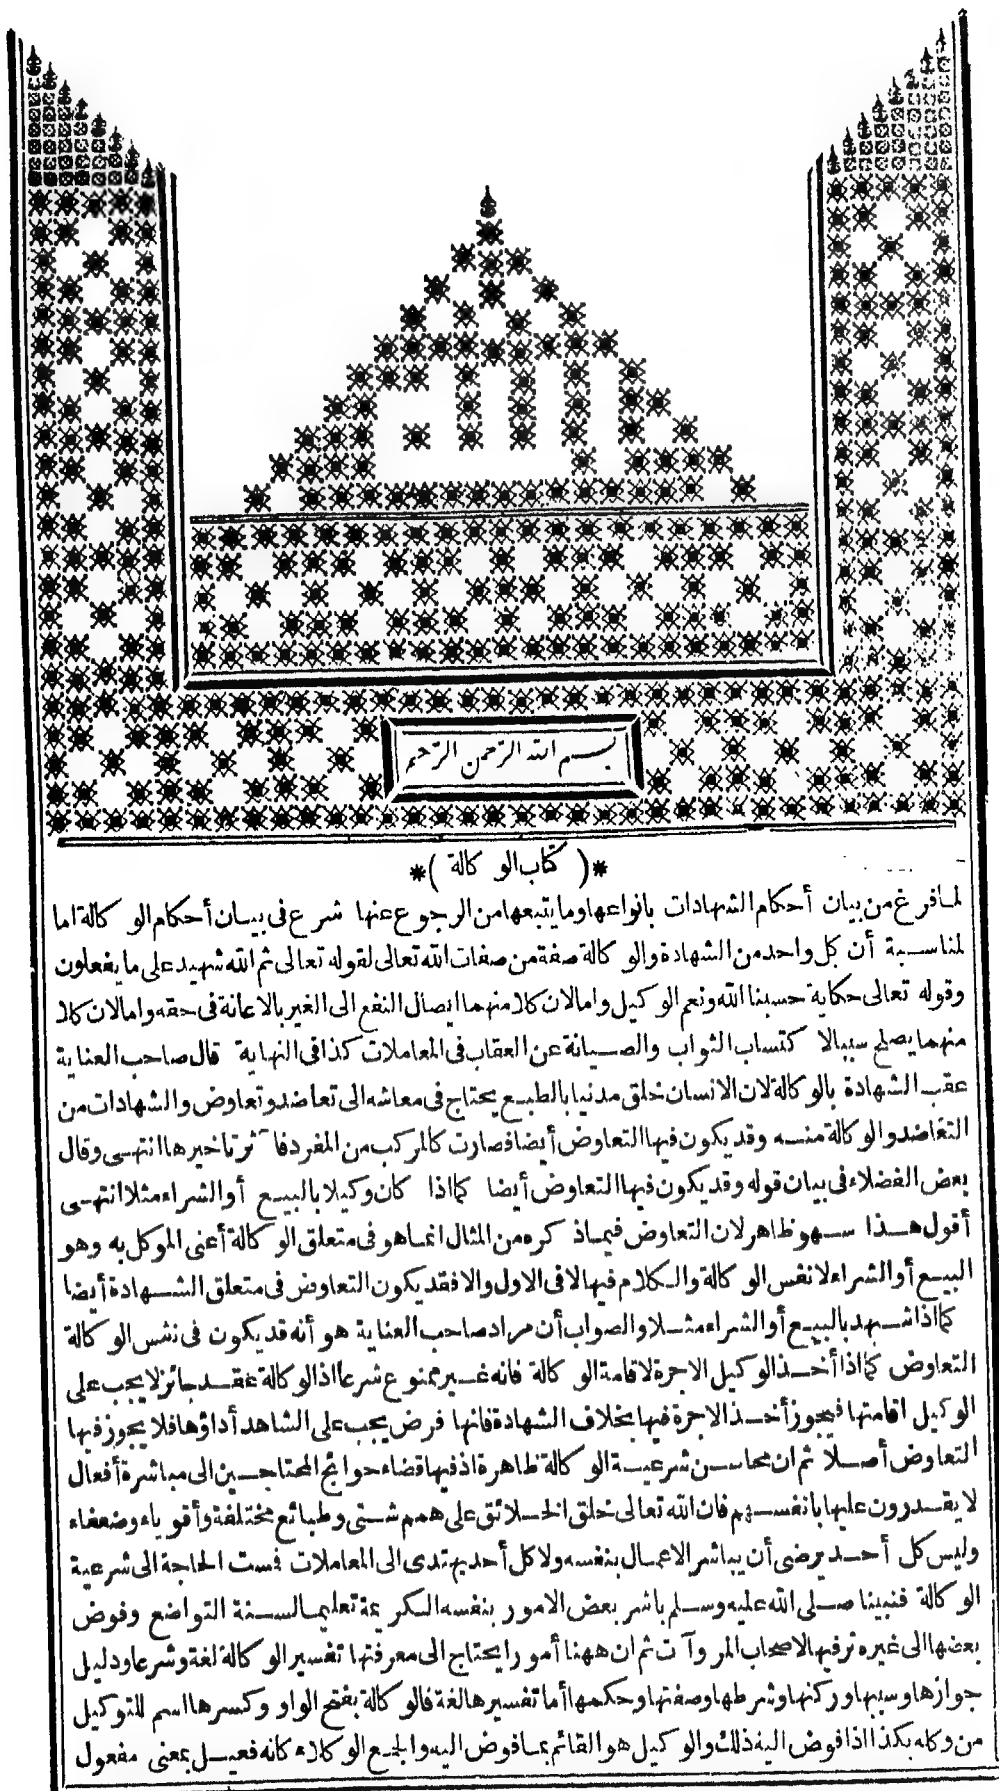 بسم الله الرحمن الرحيم
*( كتاب الوكالة )*
لما فرغ من بيان أحكام الشهادات بانواعها وما يتبعها من الرجوع عنها شرع فى بيان أحكام الوكالة اما
لمناسبة أن كل واحد من الشهادة والوكالة صفة من صفات الله تعالى لقوله تعالى ثم الله شهيد على ما يفعلون
وقوله تعالى حكاية حسبنا الله ونعم الوكيل وامالان كلا منهما ايصال النفع الى الغير بالاعانة فى حقه وامالان كلا
منهما يصلح سببا لاكتساب الثواب والصيانة عن العقاب فى المعاملات كذا فى النهاية قال صاحب العناية
عقب الشهادة بالوكالة لان الانسان خلق مدنيا بالطبع يحتاج فى معاشه الى تعاضد وتعاوض والشهادات من
التعاضد والوكالة منه وقد يكون فيها التعاوض أيضا فصارت كالمركب من المفرد فآثر تاخيرها انتهى وقال
بعض الفضلاء فى بيان قوله وقد يكون فيها التعاوض أيضا كما اذا كان وكيلا بالبيع أو الشراء مثلا انتهى
أقول هذا سهو ظاهر لان التعاوض فيما ذكره من المثال انما هو فى متعلق الوكالة أعنى الموكل به وهو
البيع أو الشراء لا نفس الوكالة والكلام فيها لا فى الاول والا فقد يكون التعاوض فى متعلق الشهادة أيضا
كما اذا شهد بالبيع أو الشراء مثلا والصواب أن مراد صاحب العناية هو أنه قد يكون فى نفس الوكالة
التعاوض كما اذا أخذ الوكيل الاجرة لاقامة الوكالة فانه غير ممنوع شرعا اذ الوكالة عقد جائز لا يجب على
الوكيل اقامتها فيجوز أخذ الاجرة فيها بخلاف الشهادة فانها فرض يجب على الشاهد أداؤها فلا يجوز فيها
التعاوض أصلا ثم ان محاسن شرعية الوكالة ظاهرة اذ فيها قضاء حوائج المحتاجين الى مباشرة أفعال
لا يقدرون عليها بانفسهم فان الله تعالى خلق الخلائق على همم شتى وطبائع مختلفة وأقوياء وضعفاء
وليس كل أحد يرضى أن يباشر الاعمال بنفسه ولا كل أحد يهتدى الى المعاملات فمست الحاجة الى شرعية
الوكالة فنبينا صلى الله عليه وسلم باشر بعض الامور بنفسه الكريمة تعليما لسنة التواضع وفوض
بعضها الى غيره ترفيها لاصحاب المروآت ثم ان ههنا أمورا يحتاج الى معرفتها تفسير الوكالة لغة وشرعا ودليل
جوازها وسببها وركنها وشرطها وصفتها وحكمها أما تفسيرها لغة فالوكالة بفتح الواو وكسرها اسم للتوكيل
من وكله بكذا اذا فوض اليه ذلك والوكيل هو القائم بما فوض اليه والجمع الوكلاء كانه فعيل بمعنى مفعول